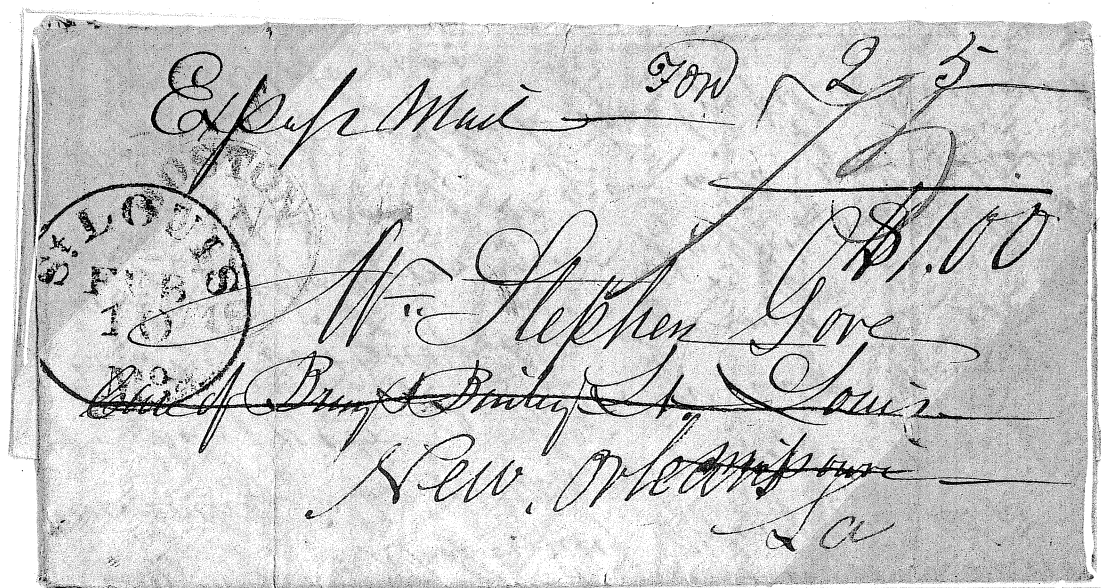 Express Mail
Ford 25
$1.00
BOSTON
St. LOUIS
FEB
10
Mo.
Wm. Stephen Gove
Care of Bray & Bailey St. Louis
Missouri
New Orleans
La